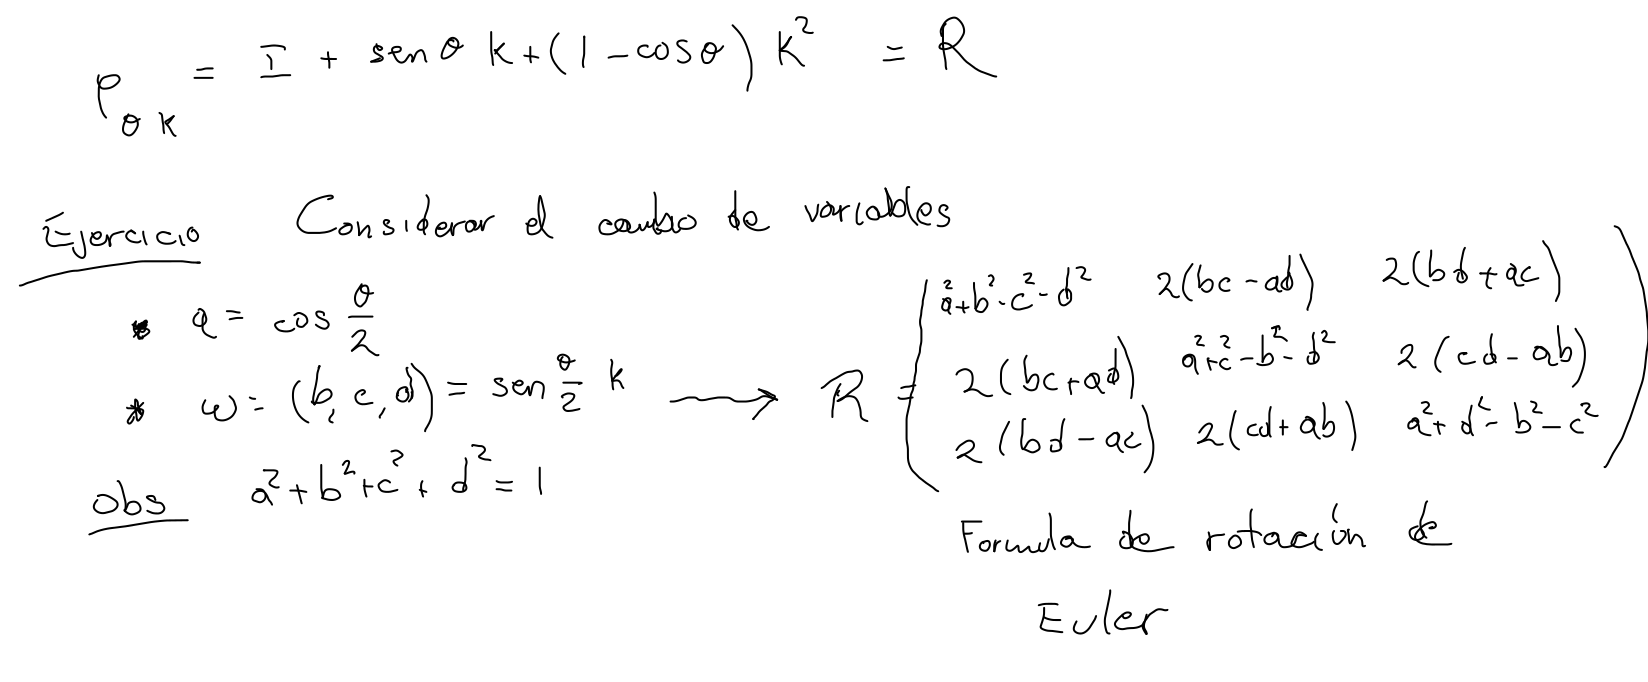 ρ_{θ K} = I + sen θ K + (1 - cos θ) K² = R
Ejercicio Considerar el cambio de variables
* a = cos θ/2
* ω = (b, c, d) = sen θ/2 k ⟶ R = ( a²+b²-c²-d² 2(bc-ad) 2(bd+ac)
2(bc+ad) a²+c²-b²-d² 2(cd-ab)
2(bd-ac) 2(cd+ab) a²+d²-b²-c² )
Obs a²+b²+c²+d² = 1
Formula de rotación de
Euler